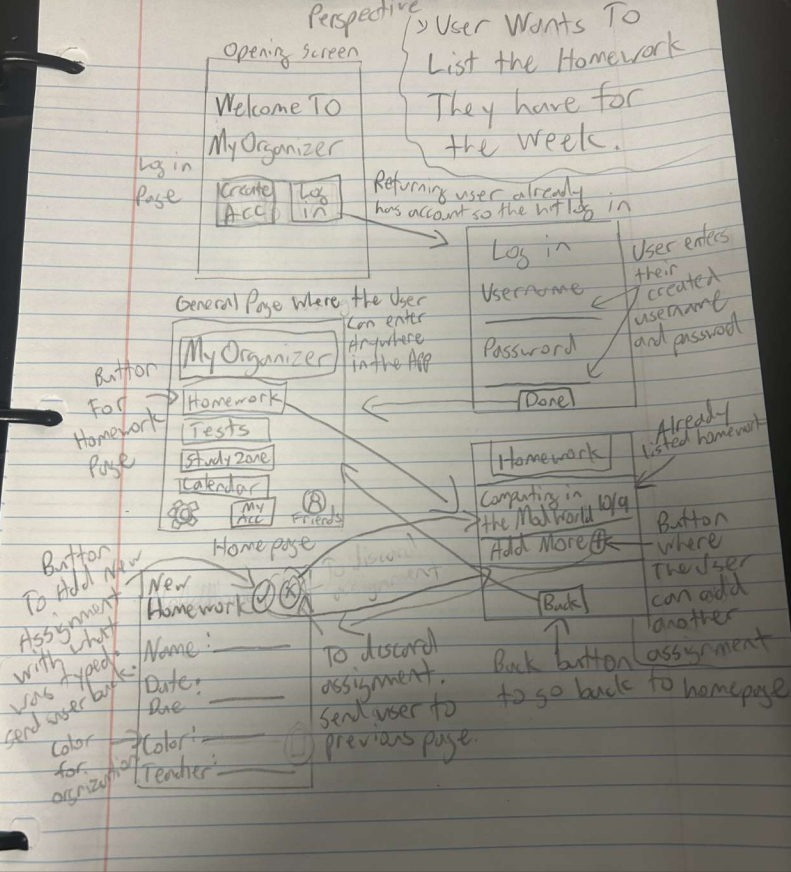 Perspective
User Wants To
List the Homework
They have for
the week.
Opening Screen
Welcome To
My Organizer
Log in
Page
Create
Acc
Log
in
Returning user already
has account so the hit log in
Log in
Username
Password
Done
User enters
their
created
username
and password
General Page where the User
can enter
Anywhere
in the App
My Organizer
Homework
Tests
Study Zone
Calendar
My
Acc
Friends
Homepage
Button
For
Homework
Page
Already
listed homework
Homework
Computing in
the Mod World 10/9
Add More +
Back
Button
where
The User
can add
another
assignment
Back button
to go back to homepage
Button
To Add New
Assignment
with what
was typed.
send user back.
New
Homework
Name:
Date:
Due
Color:
Teacher:
Color
for
orgnization
To discard
assignment
To discard
assignment.
Send user to
previous page.